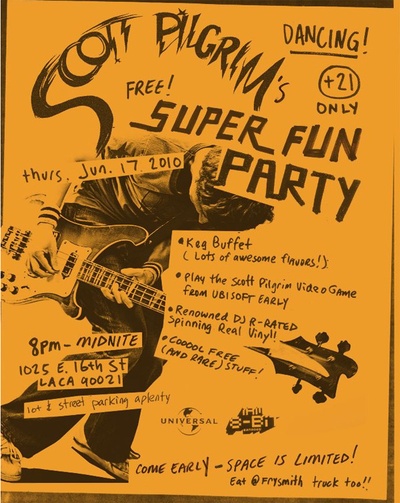 SCOTT PILGRIM's
DANCING!
FREE!
+21
ONLY
SUPER FUN
PARTY
thurs. Jun. 17 2010
• Keg Buffet
(Lots of awesome flavors!).
• Play the Scott Pilgrim Video Game
FROM UBISOFT EARLY
• Renowned DJ R-RATED
Spinning Real Vinyl!
• COOOOL FREE
(AND RARE) STUFF!
8pm - MIDNITE
1025 E. 16th St
LA CA 90021
lot & street parking aplenty
UNIVERSAL
I AM
8-BIT
COME EARLY - SPACE IS LIMITED!
Eat @ Frysmith truck too!!